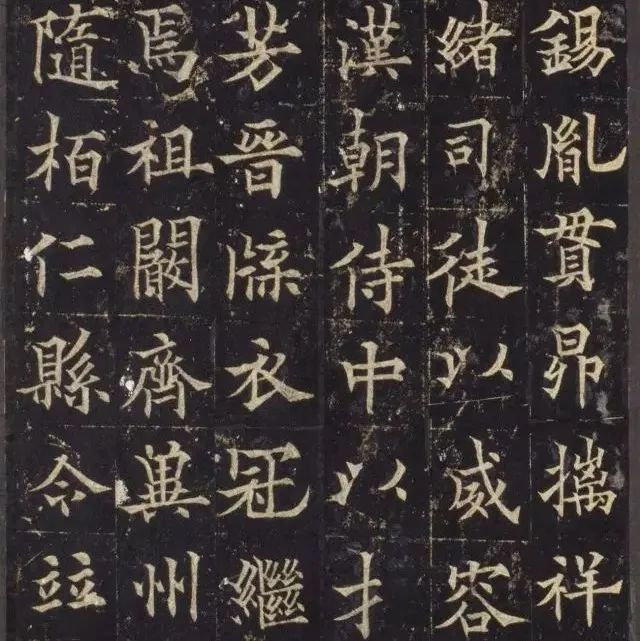 錫胤貫昴摛祥
緒司徒以威容
漢朝侍中以才
芳晉牒衣冠繼
焉祖闞齊冀州
隨柏仁縣令竝